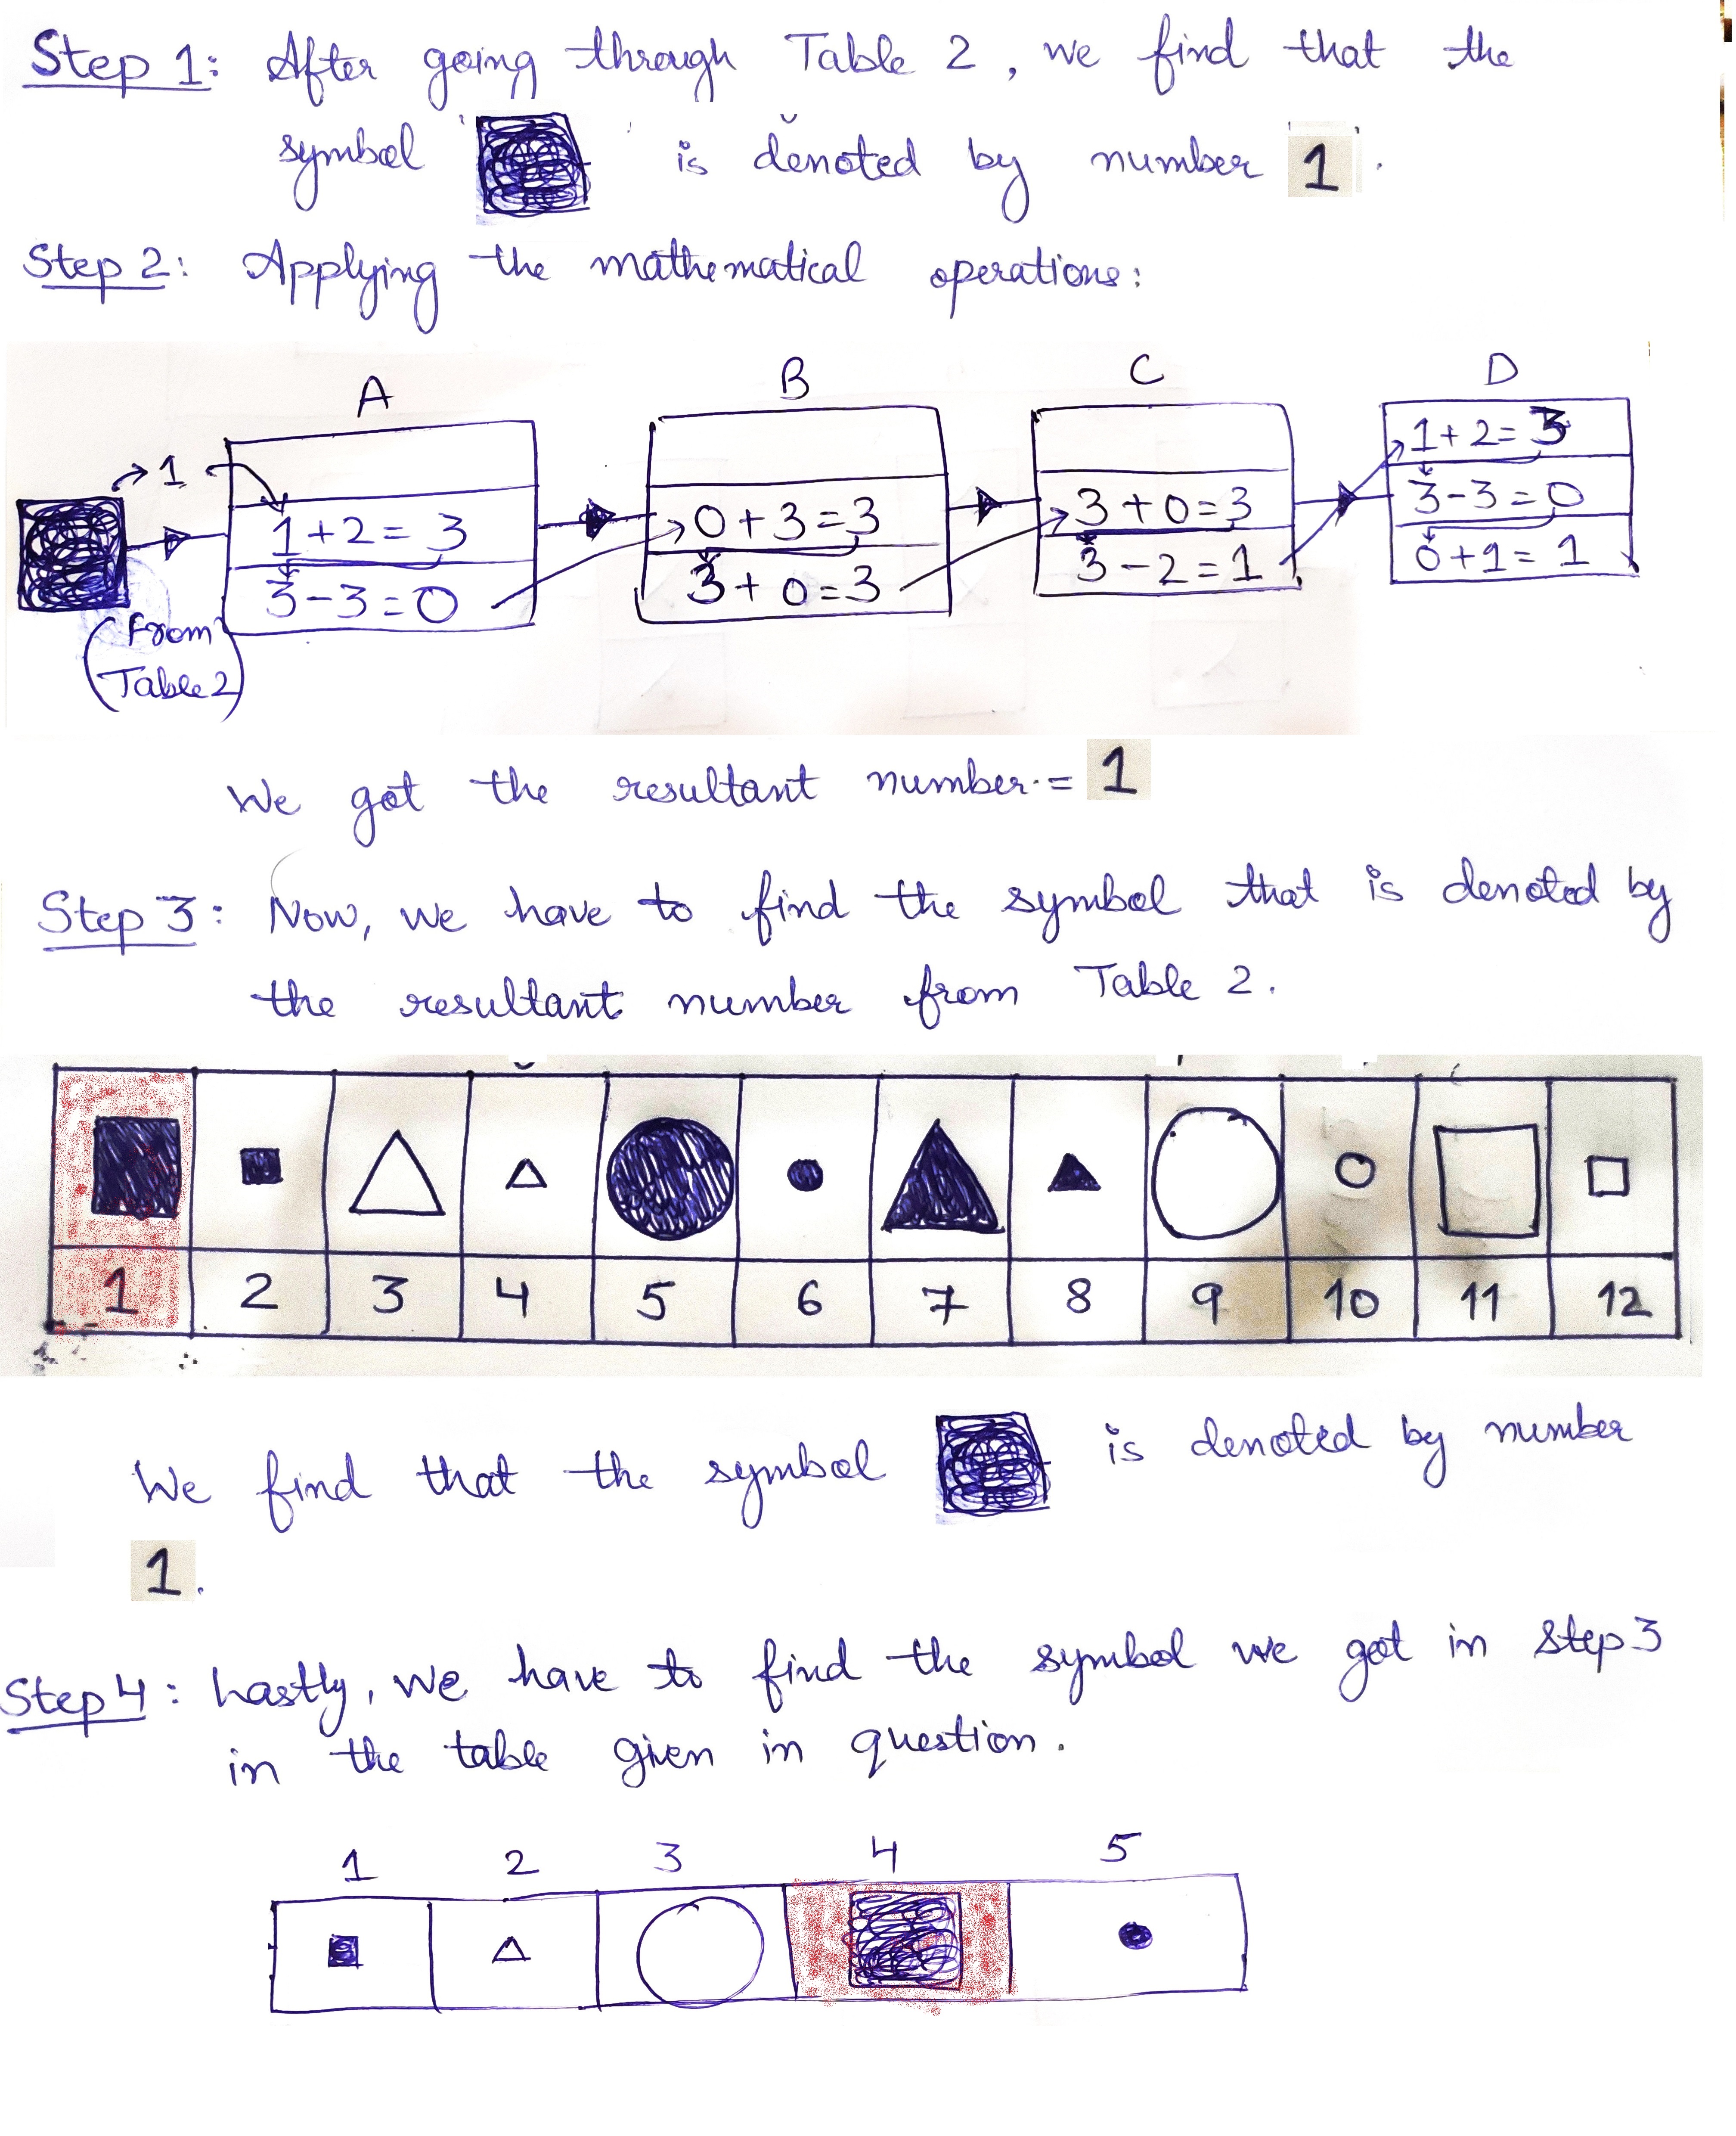 Step 1: After going through Table 2, we find that the
symbol ' ' is denoted by number 1.
Step 2: Applying the mathematical operations:
A B C D
1
1+2= 3
3-3=0
0+3=3
3+0=3
3+0=3
3-2=1
1+2=3
3-3=0
0+1=1
(From
Table 2)
We got the resultant number = 1
Step 3: Now, we have to find the symbol that is denoted by
the resultant number from Table 2.
1 2 3 4 5 6 7 8 9 10 11 12
We find that the symbol is denoted by number
1.
Step 4: Lastly, we have to find the symbol we got in step 3
in the table given in question.
1 2 3 4 5